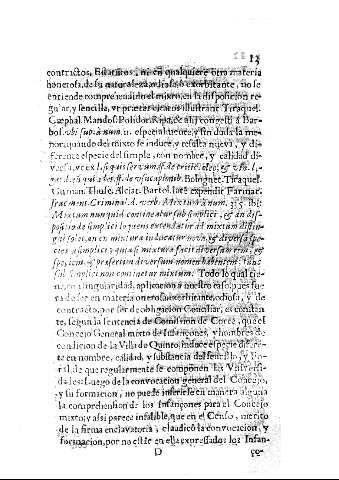 13
contractos, Estatutos, ni en qualquiere otra materia
honerosa, de su naturaleza odiosa, ò exorbitante, no se
entiende comprehendido el mixto, en la disposicion re
gular, y sencilla, vt præter citatos illustrant Tiraquel.
Cæphal. Mandos. Polidor. Ripa, & alij congesti à Bar-
bos. vbi sup. à num. especialmente, y sin duda la me-
nor, quando del mixto se induce, y resulta nueva, y di-
ferente especie del simple, con nombre, y calidad di-
versa, vt ex l.
Bolognet. Tiraquel.
Guman. Thusc. Alciat. Bartol. late expendit Farinac.
fracment. Criminal. d. verb. Mixtura à num. 315. ibi:
Mixtum nunquid contineatur sub simplici, & an dis-
positio de simplici loquens extendatur ad mixtum distin-
gui solet, an ex mixtura inducatur nova, & diversa spe-
cies à simplici, & quasi mixtura faciat diversam rem, &
speciem, & præsertim diversum nomen habentem: tunc
sub simplici non continetur mixtum: Todo lo qual tie-
ne, con singularidad, aplicacion à nuestro caso, pues fue
ra de ser en materia onerosa, exorbitante, odiosa, y de
contracto, por ser de obligacion Conciliar, es consten
te, segun la sentencia de Decision de Corte, que el
Concejo General mixto de Infançones, y hombres de
condicion de la Villa de Quinto, induce especie diferen
te en nombre, calidad, y substancia del sencillo, y Fo-
ral, de que regularmente se componen las Vniversi-
dades: Luego de la convocacion general del Concejo,
y su formacion, no puede inferirse en manera alguna
la comprehension de los Infançones para el Concejo
mixto; y assi parece infalible, que en el Censo, merito
de la firma enclavatoria, claudicò la convocacion, y
formacion, por no estàr en ella expressados los Infan-
D ço-